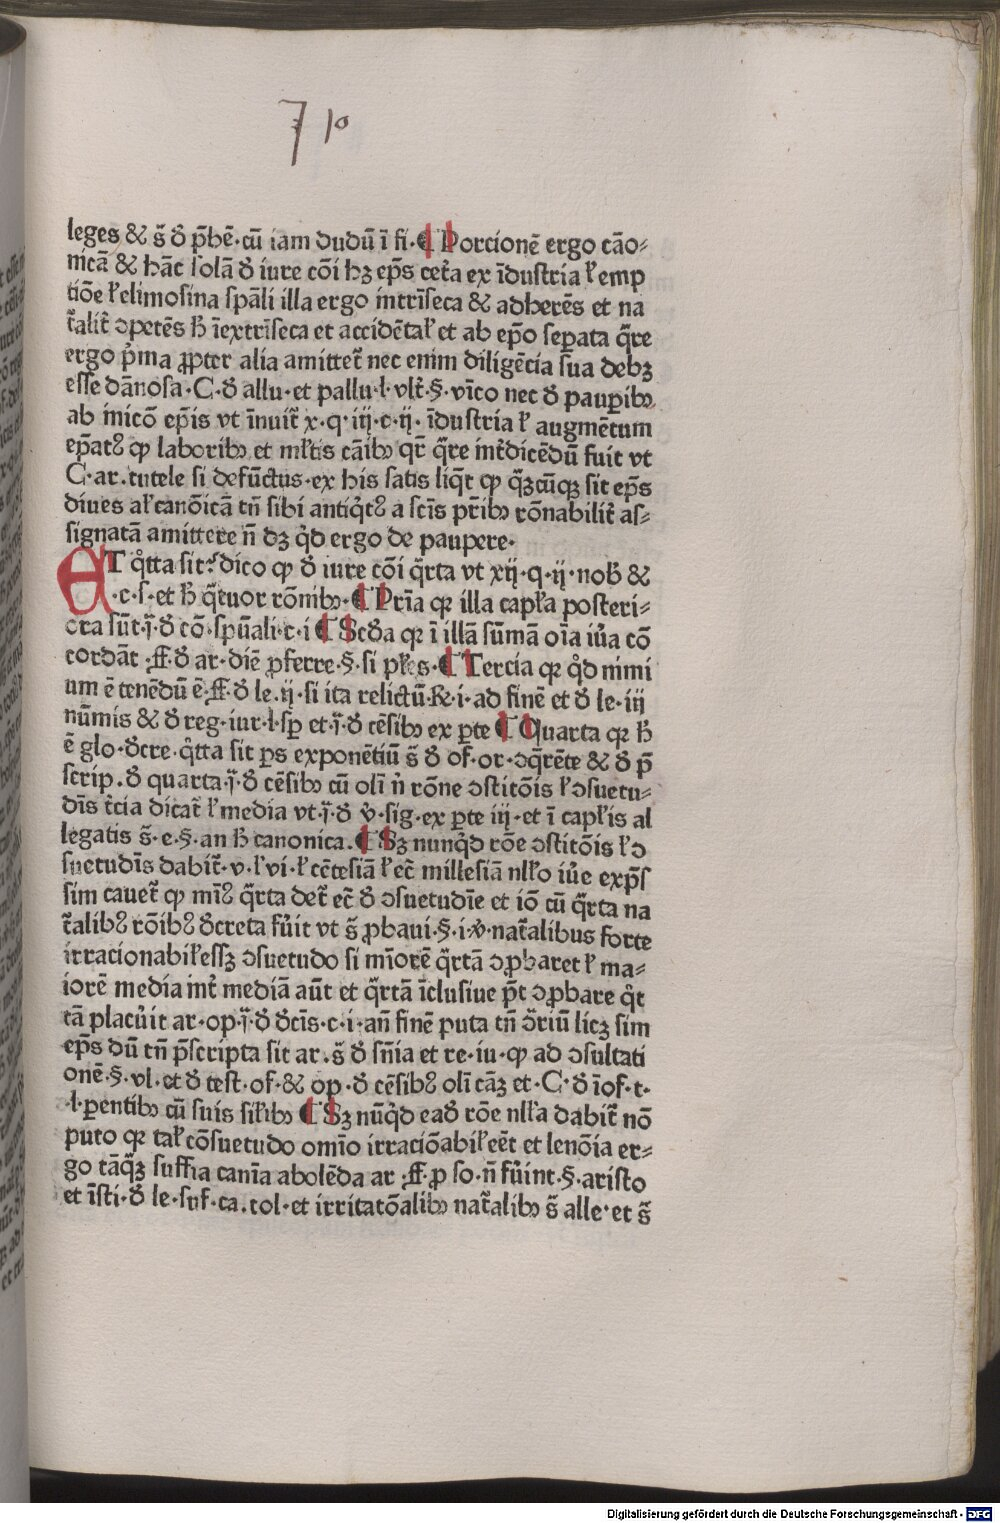 7 10
leges & s̄ ð p̄bē·cū iam dudū ī fi·¶ Porcionē ergo cāo⸗
nicā & hāc solā ð iure cōi hꝫ ep̄s cet̄a ex īdustria ł emp
tiōe ł elimosina sp̄ali illa ergo intrīseca & adherēs et na
t̄alit̄ ɔpetēs ħ īextrīseca et accidētał et ab ep̄o sep̱ata q̄re
ergo p̄ma ꝓpter alia amittet̄ nec enim diligēcia sua debꝫ
esse dānosa·C·ð allu·et pallu·l·vlt̄·§·vīco nec ð paup̱ibꝰ
ab inicō ep̄is vt īnuit̄ x·q·iij·c·ij· īdustria ł augmētum
ep̄atꝰ ꝙ laboribꝰ et młtis cāibꝰ qr̄ q̄re int̄dicēdū fuit vt
C·ar·tutele si defūctus·ex his satis liq̄t ꝙ q̄ꝫcūqꝫ sit ep̄s
diues ał canōicā tn̄ sibi antiq̇tꝰ a sc̄is pr̄ibꝰ rōnabilit̄ as⸗
signatā amittere n̄ dꝫ q̇d ergo de paupere·
ET q̊tta sit·ꝰ dico ꝙ ð iure cōi q̄rta vt xij·q·ij·noƀ &
·c·s·et ħ q̄tuor rōnibꝰ·¶ Prīa qꝛ illa capła posteri⸗
ora sūt·j̄·ð cō·spūali·c·i ¶ Scða qꝛ ī illā sūmā oīa iu̇a cō
cordāt ·ff·ð ar·diē ꝓferre·§·si płes·¶ Tercia qꝛ q̊d nimi
um ē tenēdū ē·ff·ð le·ij·si ita relictū·℞·i·ad finē et ð le·iij
nūmis & ð reg·iur·l·sp̱ et·j̄·ð cēsibꝰ ex p̱te ¶ Quarta qꝛ ħ
ē glo·ðcre·q̊tta sit p̱s exponētiū s̄ ð of·or·ɔq̄rēte & ð p̄
scrip·ð quarta·j̄·ð cēsibꝰ cū olī n̄ rōne ɔstitōis ł ɔsuetu⸗
dīs t̄cia dicat̄ ł media vt·j̄·ð v̇·sig·ex p̱te iij·et ī capłis al
legatis s̄·e·§·an ħ canonica·¶ Sꝫ nunq̇d rōe ɔstitōis ł ɔ
suetudīs dabit̄·v·ł vi·ł cētesiā ł ec̄ millesiā nłło iu̇e exp̄s
sim cauet̄ ꝙ mīꝰ q̄rta det̄ ec̄ ð ɔsuetudīe et iō cū q̄rta na
t̄alibꝰ rōibꝰ ðcreta fu̇it vt s̄ ꝓbaui·§·i·v̇·nat̄alibus forte
irracionabiłessꝫ ɔsuetudo si mīorē q̄rtā ɔꝓbaret ł ma⸗
iorē media int̄ mediā aūt et q̄rtā īclusiue p̄t ɔꝓbare q̊t
tā placu̇it ar·op·j̄·ð ðcīs·c·i·an̄ finē puta tn̄ ɔ̄riū licꝫ sim
ep̄s dū tn̄ p̄scripta sit ar·s̄ ð sn̄ia et re·iu·ꝙ ad ɔsultati
onē·§·vl·et ð test·of·& op·ð cēsibꝰ olī cāꝫ et·C·ð īof·t·
·l·p̱entibꝰ cū suis siłibꝰ ¶ Sꝫ nūq̇d eað rōe nłła dabit̄ nō
puto qꝛ tał cōsuetudo omīo irraciōabił eēt et lenōia er⸗
go tāq̄ꝫ suffia canīa abolēda ar ·ff·ꝓ so·n̄ fu̇int·§·aristo
et īsti·ð le·suf·ca·tol·et irritatōalibꝰ nat̄alibꝰ s̄ alle·et s̄
Digitalisierung gefördert durch die Deutsche Forschungsgemeinschaft - DFG